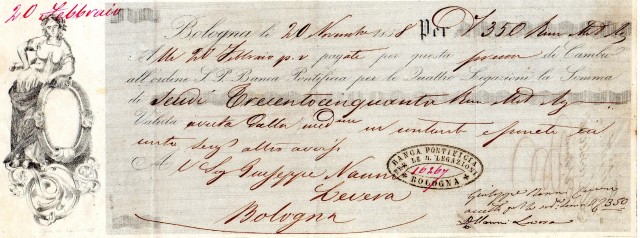 20 Febbraio
Bologna le 20 Novembre 1858 Per Sd 350 Rom. Met. Ag
Alli 20 Febraio p. v. pagate per questa prima di Cambio
all'ordine S. P. Banca Pontificia per le Quattro Legazioni la Somma
di Scudi Trecentocinquanta Rom. Met. Ag
Valuta avuta dalla med.ma in contanti e ponete in
conto senz'altro avviso
Al Sig Giuseppe Nanni
Levera
Bologna
BANCA PONTIFICIA
PER LE 4 LEGAZIONI
10267
BOLOGNA
Giuseppe Nanni
accetto 350
Nanni Levera